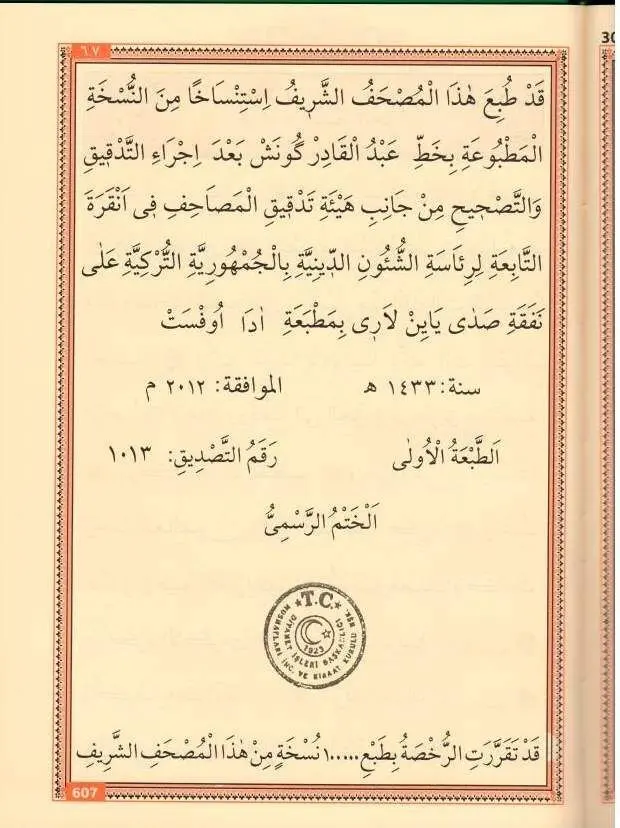 ٦٠٧
30
قَدْ طُبِعَ هٰذَا الْمُصْحَفُ الشَّرِيفُ اِسْتِنْسَاخًا مِنَ النُّسْخَةِ
الْمَطْبُوعَةِ بِخَطِّ عَبْدُ الْقَادِرْ گُونَشْ بَعْدَ اِجْرَاءِ التَّدْقِيقِ
وَالتَّصْحِيحِ مِنْ جَانِبِ هَيْئَةِ تَدْقِيقِ الْمَصَاحِفِ فِى اَنْقَرَةَ
التَّابِعَةِ لِرِئَاسَةِ الشُّئُونِ الدِّينِيَّةِ بِالْجُمْهُورِيَّةِ التُّرْكِيَّةِ عَلٰى
نَفَقَةِ صَدٰى يَايِنْ لَارِى بِمَطْبَعَةِ اٰدَا اُوفْسَتْ
سنة: ١٤٣٣ ه الموافقة: ٢٠١٢ م
اَلطَّبْعَةُ الْاُولٰى رَقَمُ التَّصْدِيقِ: ١٠١٣
اَلْخَتْمُ الرَّسْمِىُّ
T.C.
DİYANET İŞLERİ BAŞKANLIĞI
MUSHAFLARI İNC. VE KIRAAT KURULU BŞK.
1923
قَدْ تَقَرَّرَتِ الرُّخْصَةُ بِطَبْعِ ١٠٠٠٠ نُسْخَةٍ مِنْ هٰذَا الْمُصْحَفِ الشَّرِيفِ
607